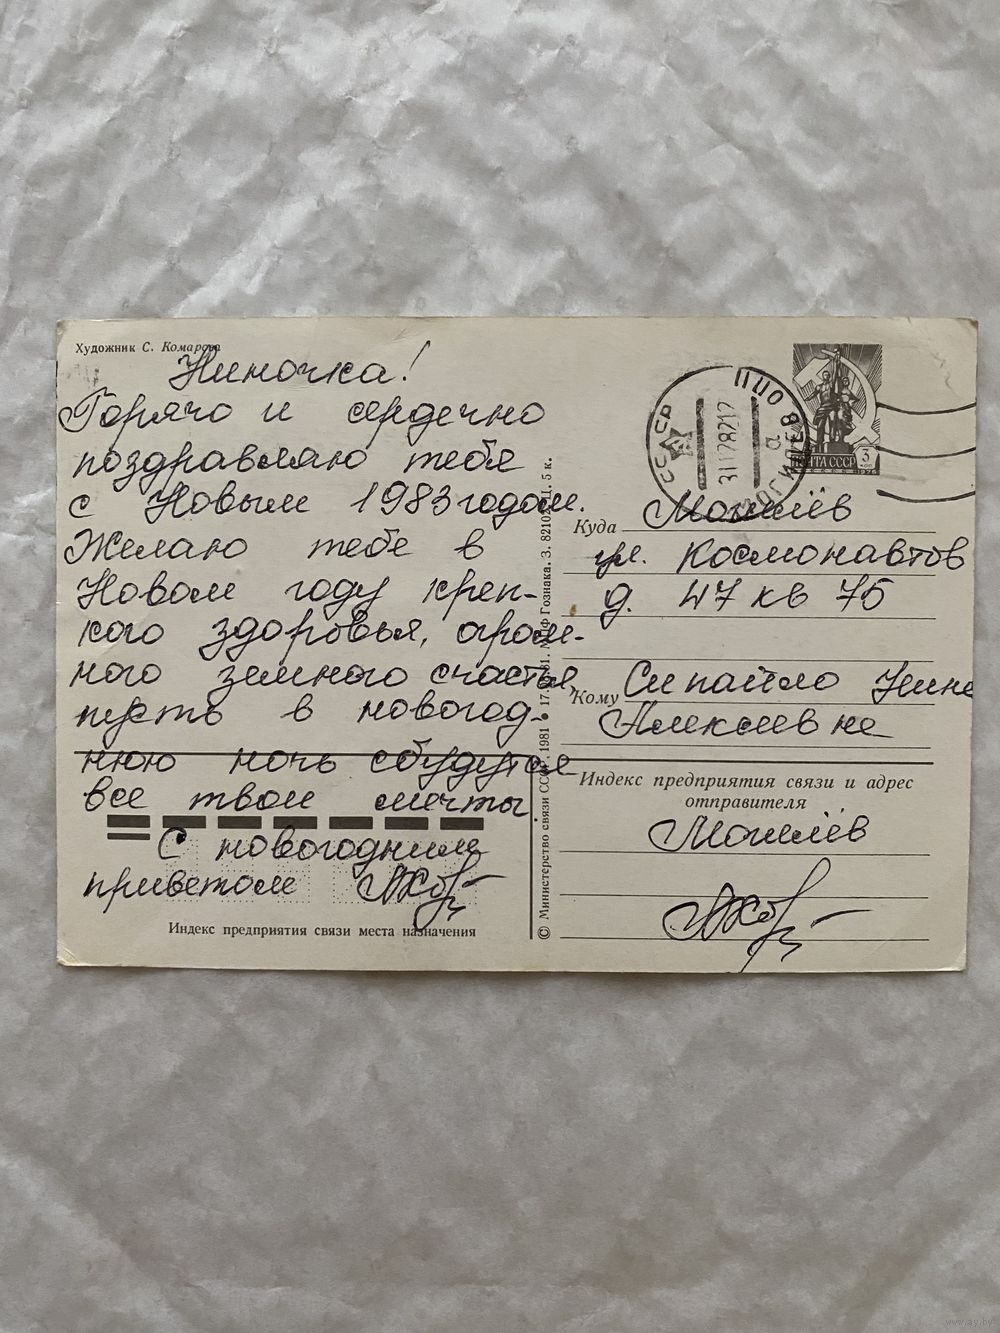 Художник С. Комарова
Ниночка!
Горячо и сердечно
поздравляю тебя
с Новым 1983 годом.
Желаю тебе в
Новом году креп-
кого здоровья, огром-
ного земного счастья,
пусть в новогод-
нюю ночь сбудутся
все твои мечты.
С новогодним
приветом
Индекс предприятия связи места назначения
© Министерство связи СССР, 1981 • 17. МПФ Гознака. З. 82102 5 к.
СССР
311282 17
ПОЧТА СССР
3
КОП
1976
Куда Могилёв
ул. Космонавтов
д. 47 кв 75
Кому Сипайло Нине
Алексеевне
Индекс предприятия связи и адрес
отправителя
Могилёв
www.ay.by